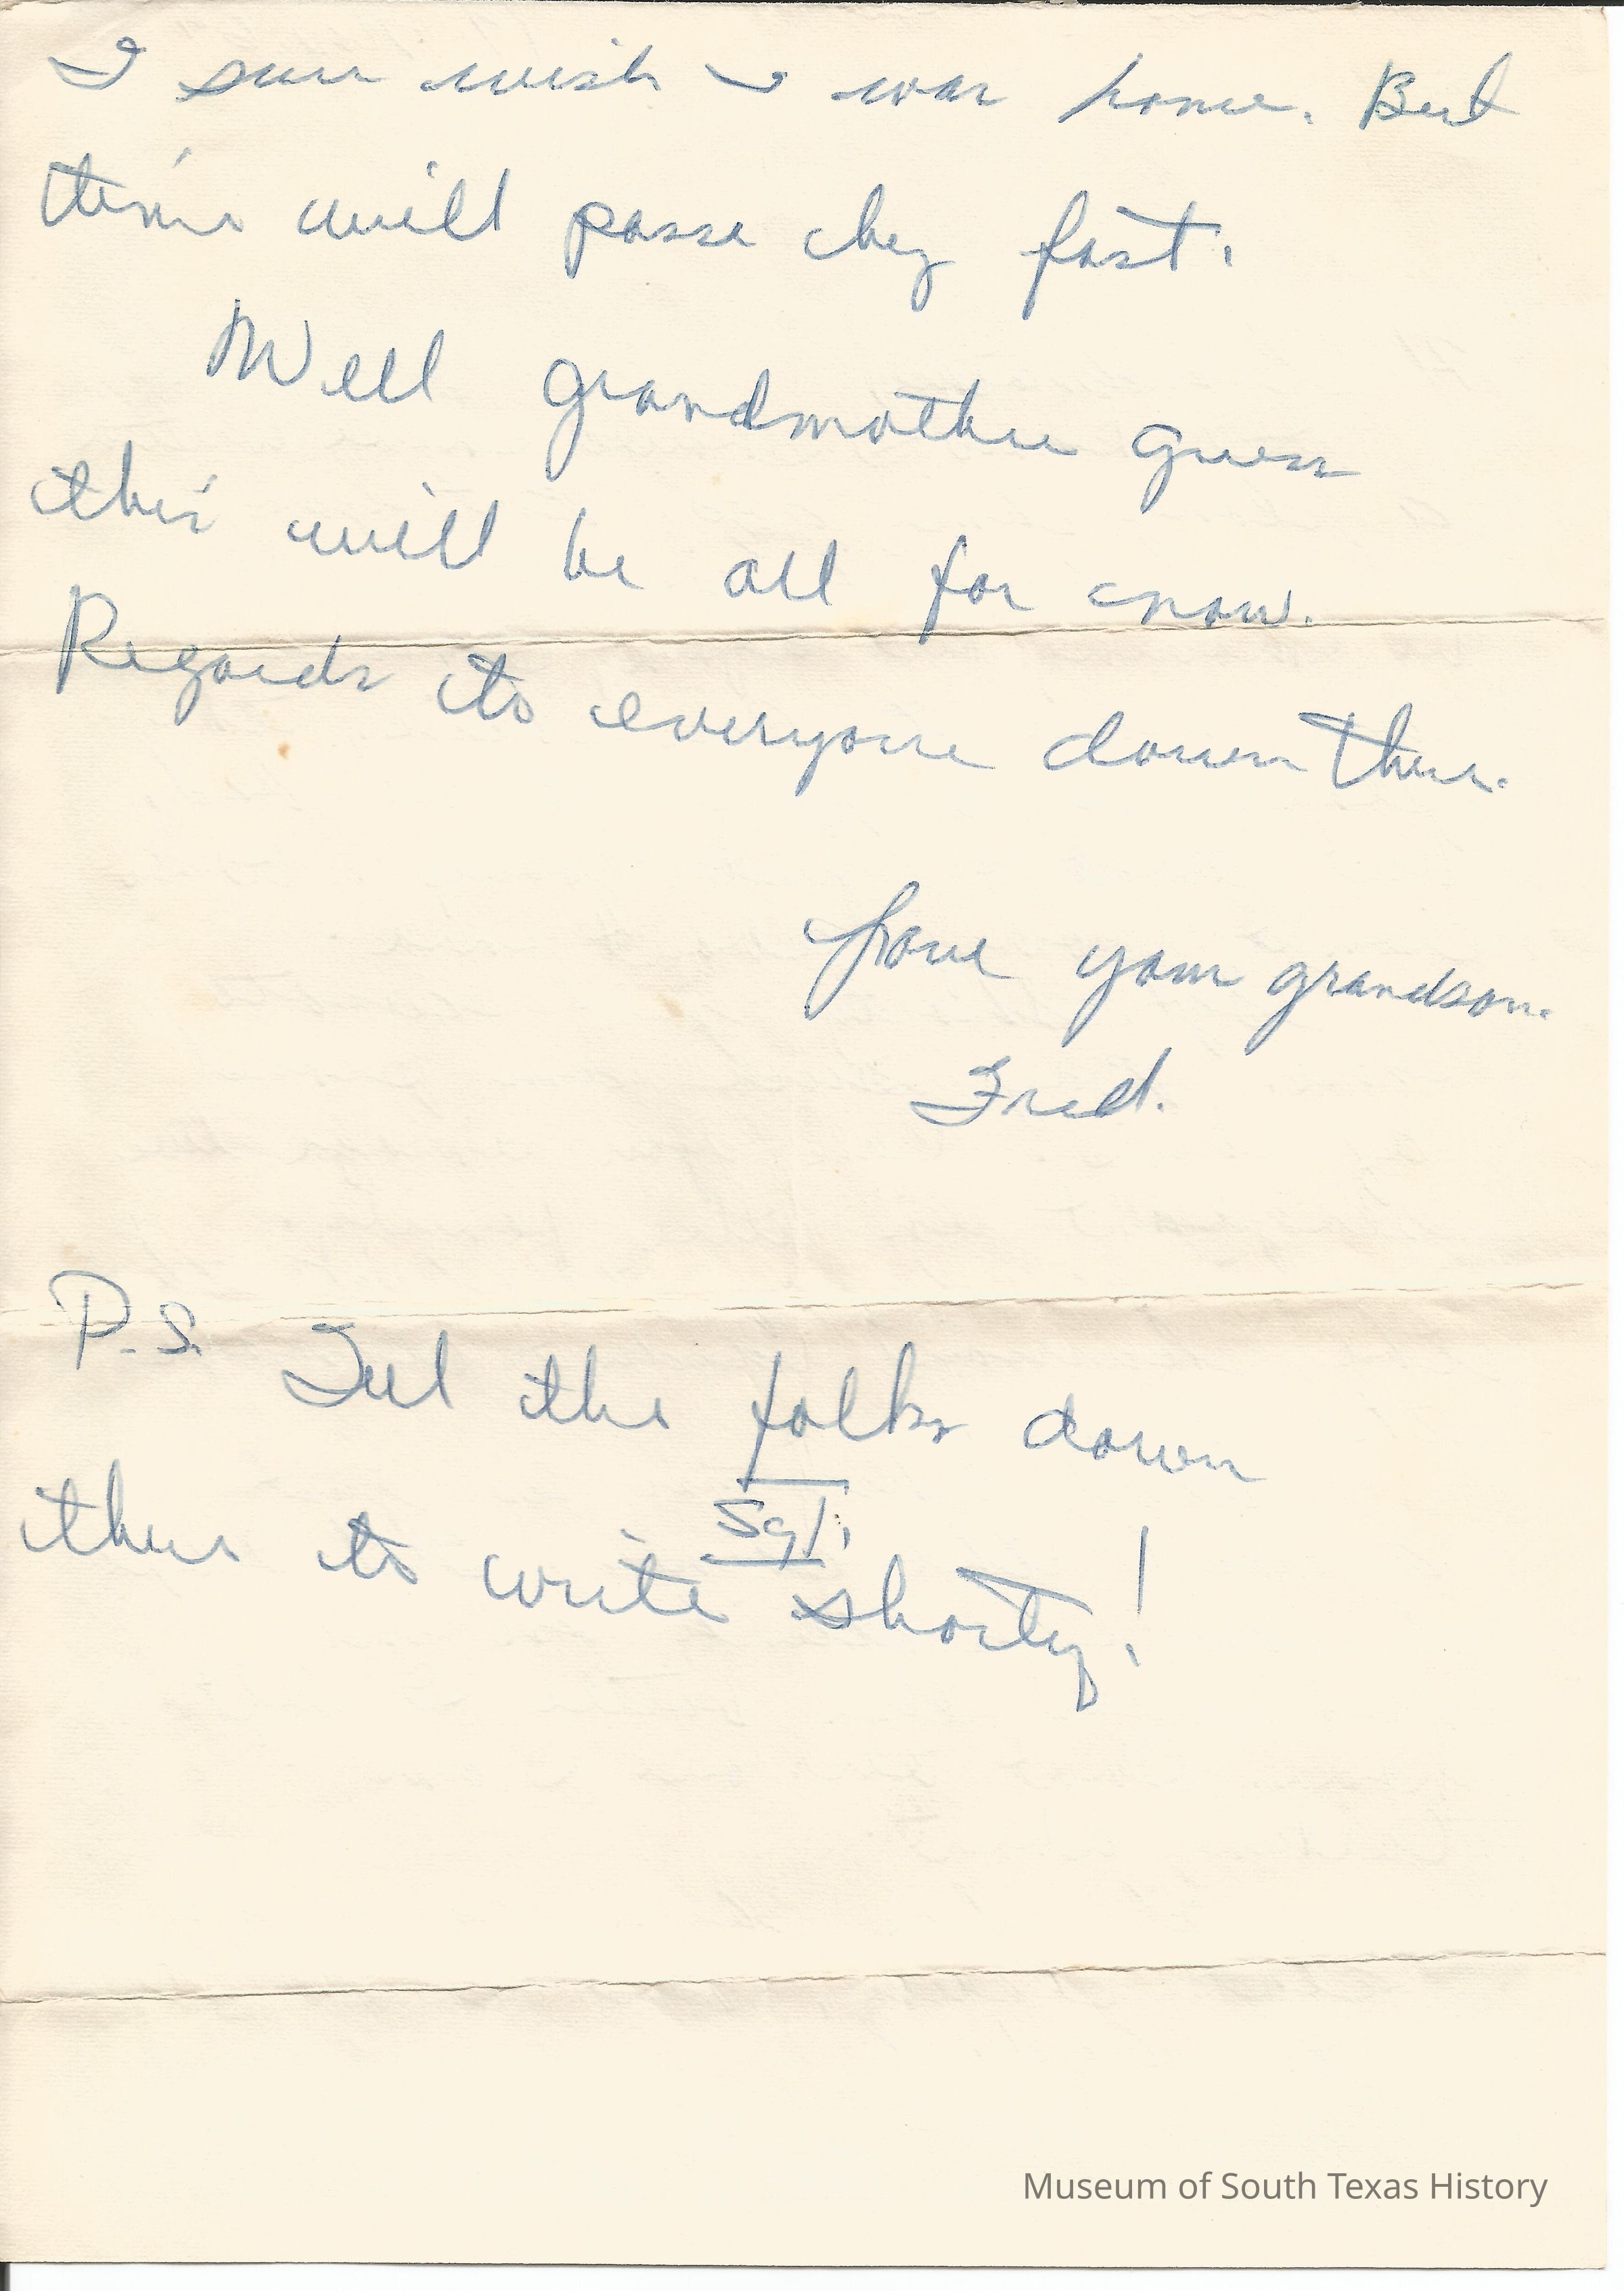 I sure wish I was home. But
time will passe by fast.
Well grandmother guess
this will be all for now.
Regards to everyone down there.
Love your grandson.
Fred.
P.S. Tell the folks down
there to write Sgt. Shorty!
Museum of South Texas History